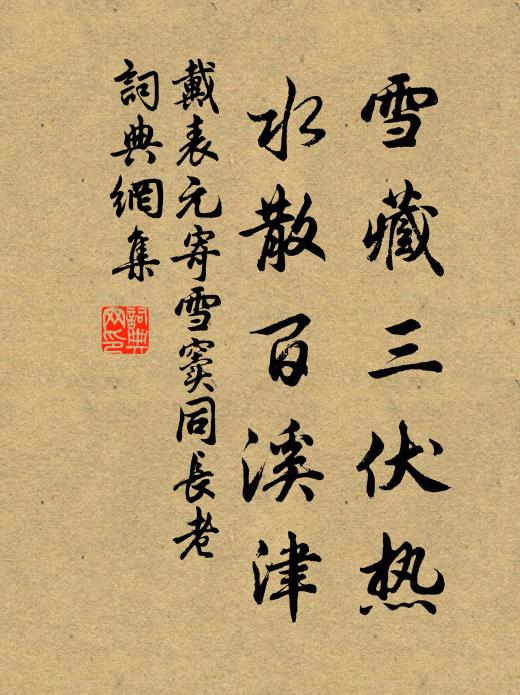 雪藏三伏热
水散百溪津
戴表元寄雪窦同長老
詞典網集
詞典网印